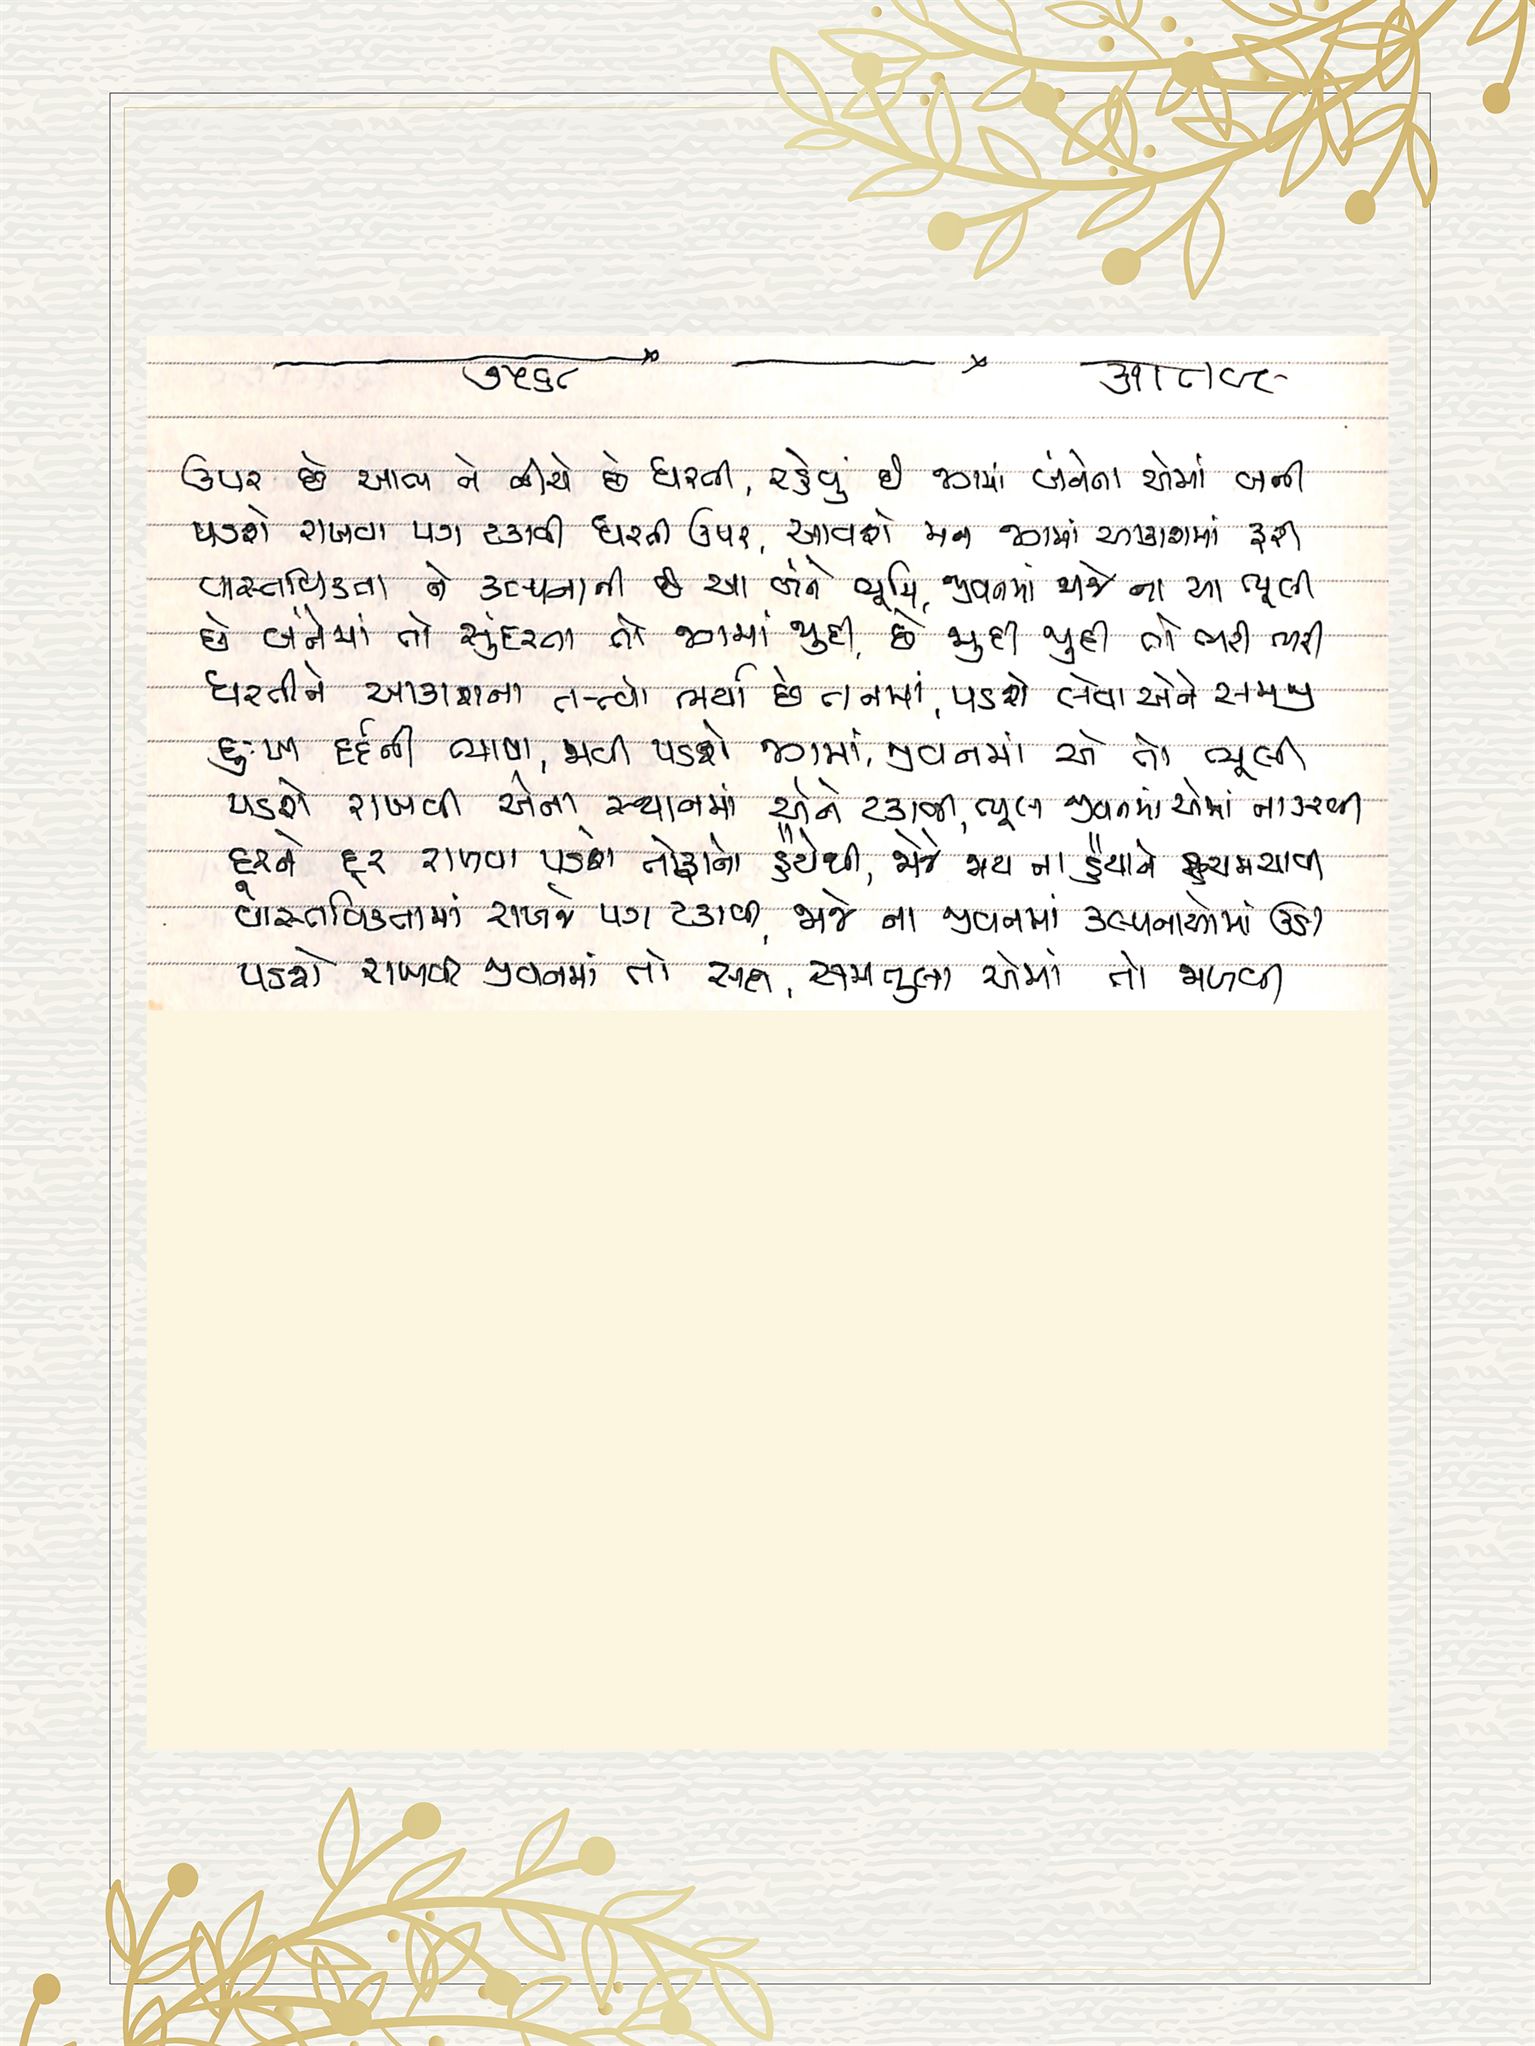 ૭૫૬૮
ઉપર છે આભ ને નીચે છે ધરતી, રહેવું છે જગમાં બંનેના એમાં બની
પડશે રાખવા પગ ટકાવી ધરતી ઉપર, આવશે મન જગમાં આકાશમાં ફરી
વાસ્તવિકતા ને કલ્પનાની છે આ બંને ભૂમિ, જીવનમાં જાજે ના આ ભૂલી
છે બંનેમાં તો સુંદરતા તો જગમાં જુદી, છે જુદી જુદી તો ભરી ભરી
ધરતીને આકાશના તત્ત્વો ભર્યા છે તનમાં, પડશે લેવા એને સમજી
દુઃખ દર્દની ભાષા, જાવી પડશે જગમાં, જીવનમાં એ તો ભૂલી
પડશે રાખવી એના સ્થાનમાં એને ટકાવી, ભૂલ જીવનમાં એમાં ના કરવી
દૂરને દૂર રાખવા પડશે તોફાનો હૈયેથી, જોજે જાય ના હૈયાને હચમચાવી
વાસ્તવિકતામાં રાખજે પગ ટકાવી, જાજે ના જીવનમાં કલ્પનાઓમાં ઉડી
પડશે રાખવી જીવનમાં તો સદા, સમતુલા એમાં તો જાળવી